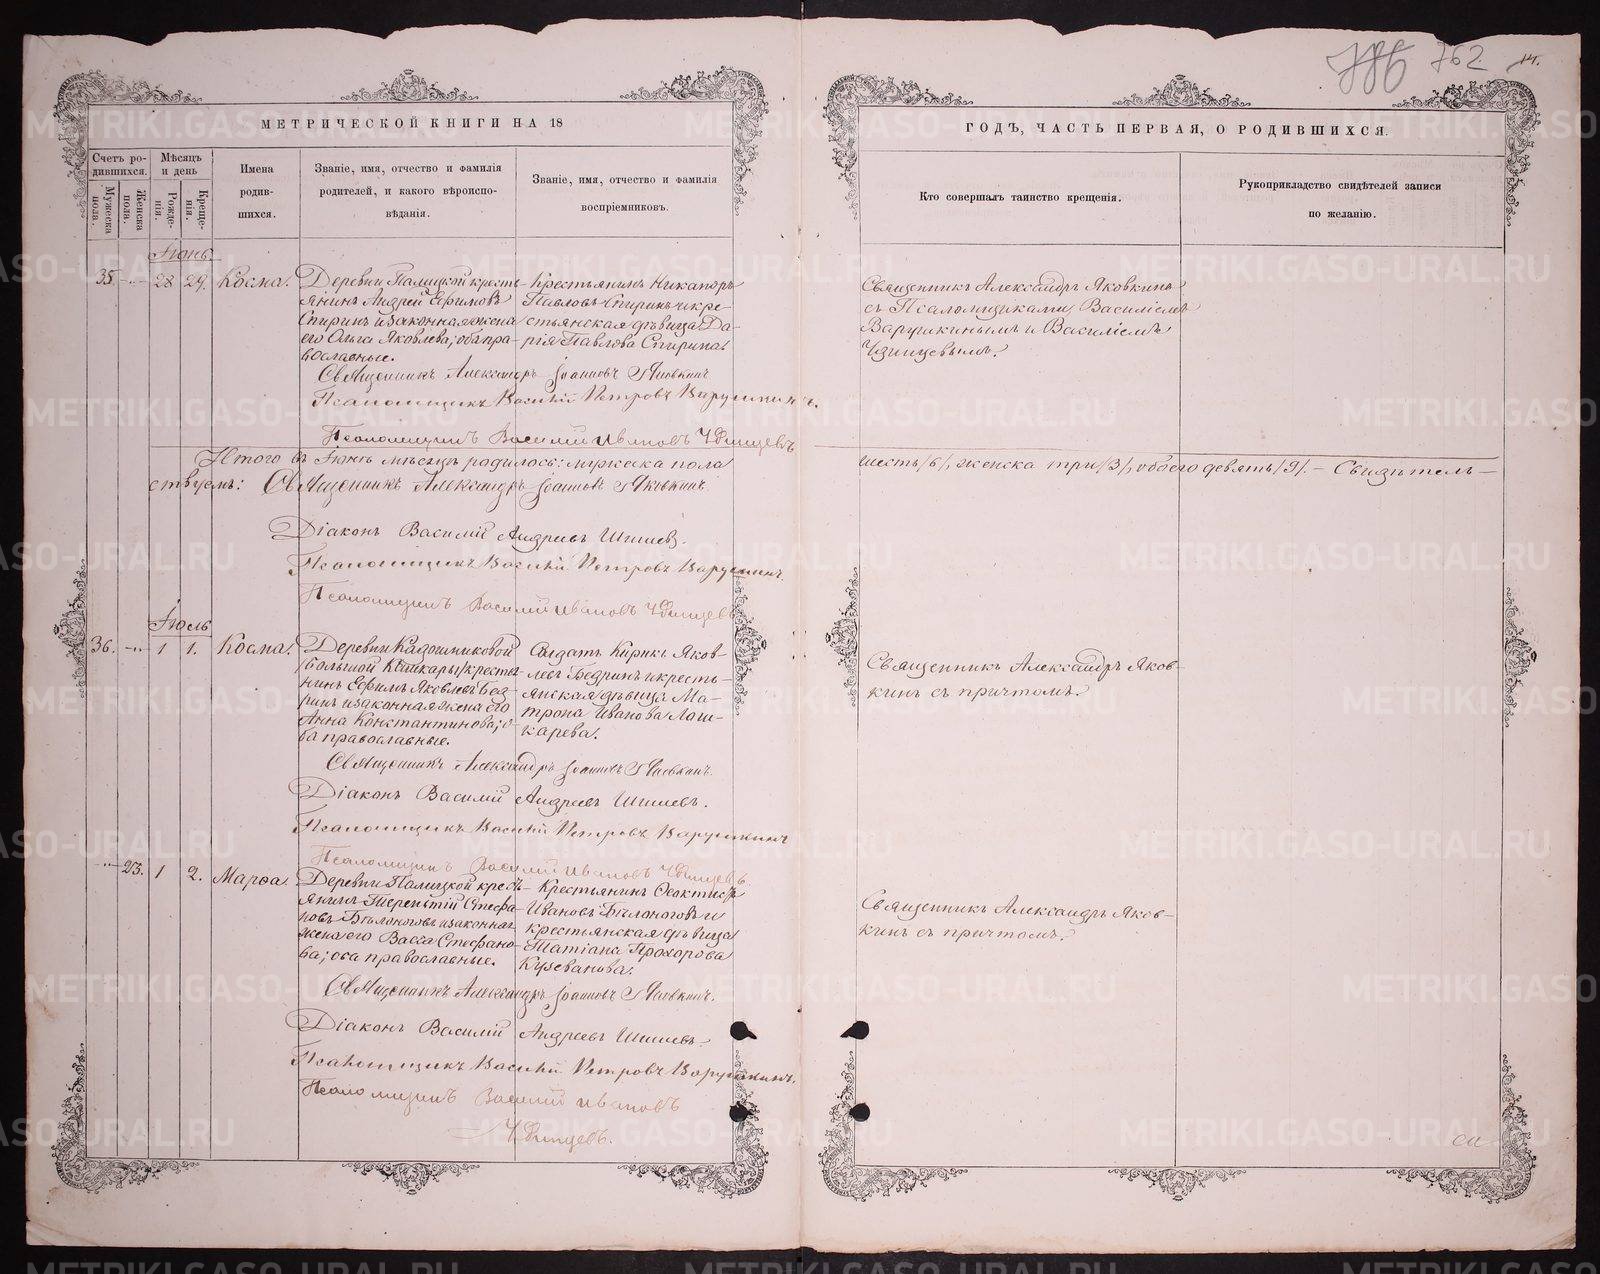 762
14.
МЕТРИЧЕСКОЙ КНИГИ НА 18
ГОДЪ, ЧАСТЬ ПЕРВАЯ, О РОДИВШИХСЯ.
Счетъ ро-
дившихся.
Мужеска
пола.
Женска
пола.
Мѣсяцъ
и день
Рожде-
нія.
Креще-
нія.
Имена
родив-
шихся.
Званіе, имя, отчество и фамилія
родителей, и какого вѣроиспо-
вѣданія.
Званіе, имя, отчество и фамилія
воспріемниковъ.
Кто совершалъ таинство крещенія.
Рукоприкладство свидѣтелей записи
по желанію.
Іюнь
35.
28
29.
Косма.
Деревни Палицкой кресть-
янинъ Андрей Ефимовъ
Спиринъ и законная жена
его Ольга Яковлева; оба пра-
вославные.
Крестьянинъ Никаноръ
Павловъ Спиринъ и кре-
стьянская дѣвица Да-
рія Павлова Спирина.
Священникъ Александръ Яковкинъ
съ Псаломщиками, Василіемъ
Варушкинымъ и Василіемъ
Священникъ Александръ Іоанновъ Яковкинъ
Псаломщикъ Василій Петровъ Варушкинъ.
Псаломщикъ Василій Ивановъ
Итого въ Іюнѣ мѣсяцѣ родилось: мужеска пола
шесть /6/, женска три /3/, обоего девять /9/. – Свидѣтель–
ствуемъ: Священникъ Александръ Іоанновъ Яковкинъ.
Діаконъ Василій Андреевъ Шишевъ.
Псаломщикъ Василій Петровъ Варушкинъ.
Псаломщикъ Василій Ивановъ
Іюль
36.
1
1.
Косма.
Деревни Кадошниковой
/Большой Кашкары/ кресть-
янинъ Ефимъ Яковлевъ Бед-
ринъ и законная жена его
Анна Константинова; о-
ба православные.
Солдатъ Кирикъ Яков-
левъ Бедринъ и кресть-
янская дѣвица Ма-
трона Иванова Лош-
карева.
Священникъ Александръ Яков-
кинъ съ причтомъ.
Священникъ Александръ Іоанновъ Яковкинъ.
Діаконъ Василій Андреевъ Шишевъ.
Псаломщикъ Василій Петровъ Варушкинъ
Псаломщикъ Василій Ивановъ
23.
1
2.
Марѳа.
Деревни Палицкой кресть-
янинъ Терентій Стефа-
новъ Бѣлоноговъ и законная
жена его Васса Стефано-
ва; оба православные.
Крестьянинъ Ѳеоктистъ
Ивановъ Бѣлоноговъ и
крестьянская дѣвица
Татіана Прохорова
Кузеванова.
Священникъ Александръ Яков-
кинъ съ причтомъ.
Священникъ Александръ Іоанновъ Яковкинъ.
Діаконъ Василій Андреевъ Шишевъ.
Псаломщикъ Василій Петровъ Варушкинъ.
Псаломщикъ Василій Ивановъ
METRIKI.GASO-URAL.RU